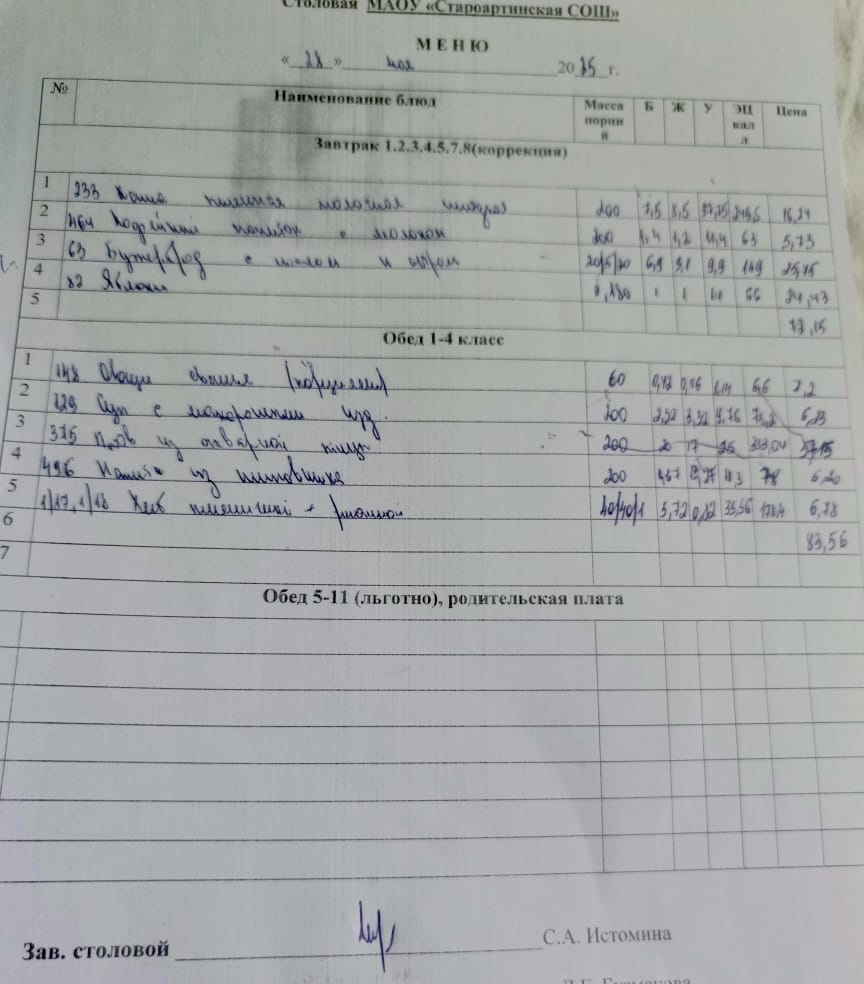 Столовая МАОУ «Староартинская СОШ»
МЕНЮ
« 28 » мая 2025 г.
№ Наименование блюд Масса порций Б Ж У ЭЦ кал л Цена
Завтрак 1.2.3.4.5.7.8(коррекция)
1 233 Каша пшенная молочная жидкая 200 7,5 8,5 37,25 16,24
2 464 Кофейный напиток с молоком 200 1,4 1,2 11,4 63 5,73
3 63 Бутерброд с маслом и сыром 20/5/20 6,9 9,1 9,9 149 25,15
4 82 Яблоки 0,180 1 1 24,43
5
Обед 1-4 класс
1 148 Овощи свежие 60 0,06 6,6 7,2
2 129 Суп с макаронными изд. 200 2,32 9,76
3 375 Плов из отварной птицы 200 20 17 26 333,04 37,15
4 496 Напиток из шиповника 200 78 6,20
5 1/17, 1/18 Хлеб пшеничный + ржаной 40/40/1 5,72 35,56 178,4 6,78
6 83,56
7
Обед 5-11 (льготно), родительская плата
Зав. столовой С.А. Истомина